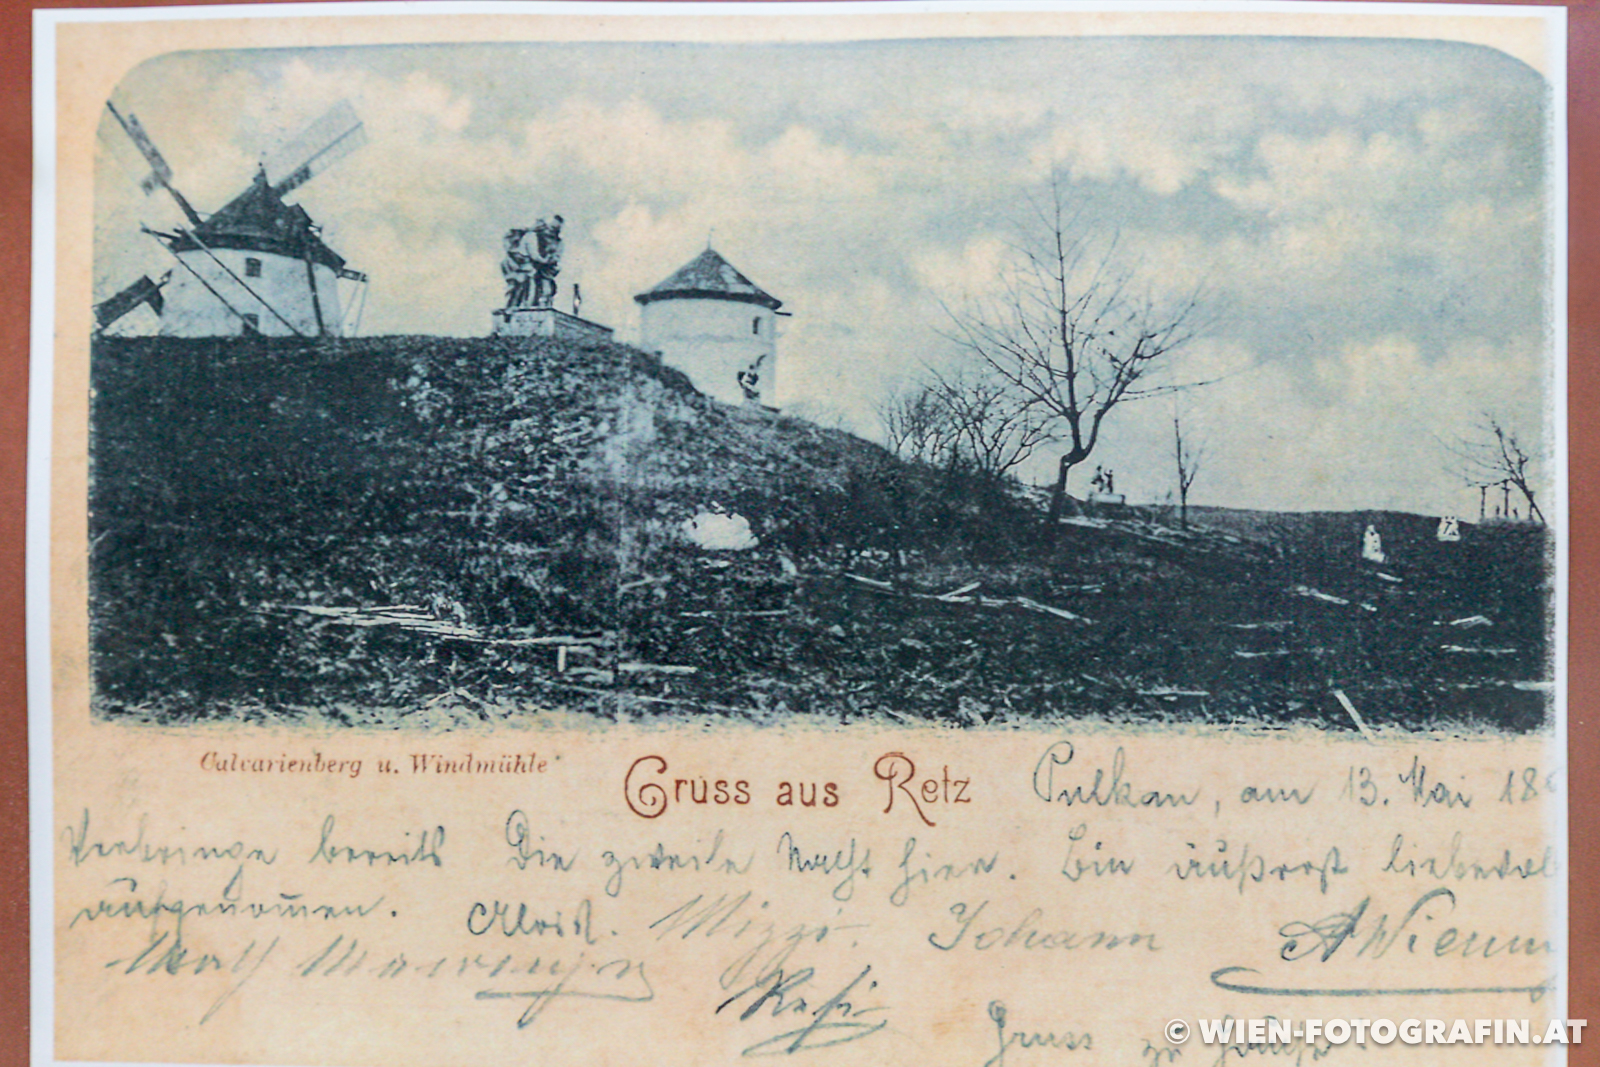 Calvarienberg u. Windmühle
Gruss aus Retz
Pulkau, am 13. Mai 18
Verbringe bereits die zweite Nacht hier. Bin äußerst liebevol
aufgenommen. Alois. Mizzi. Johann
Resi
Gruss zu
© WIEN-FOTOGRAFIN.AT